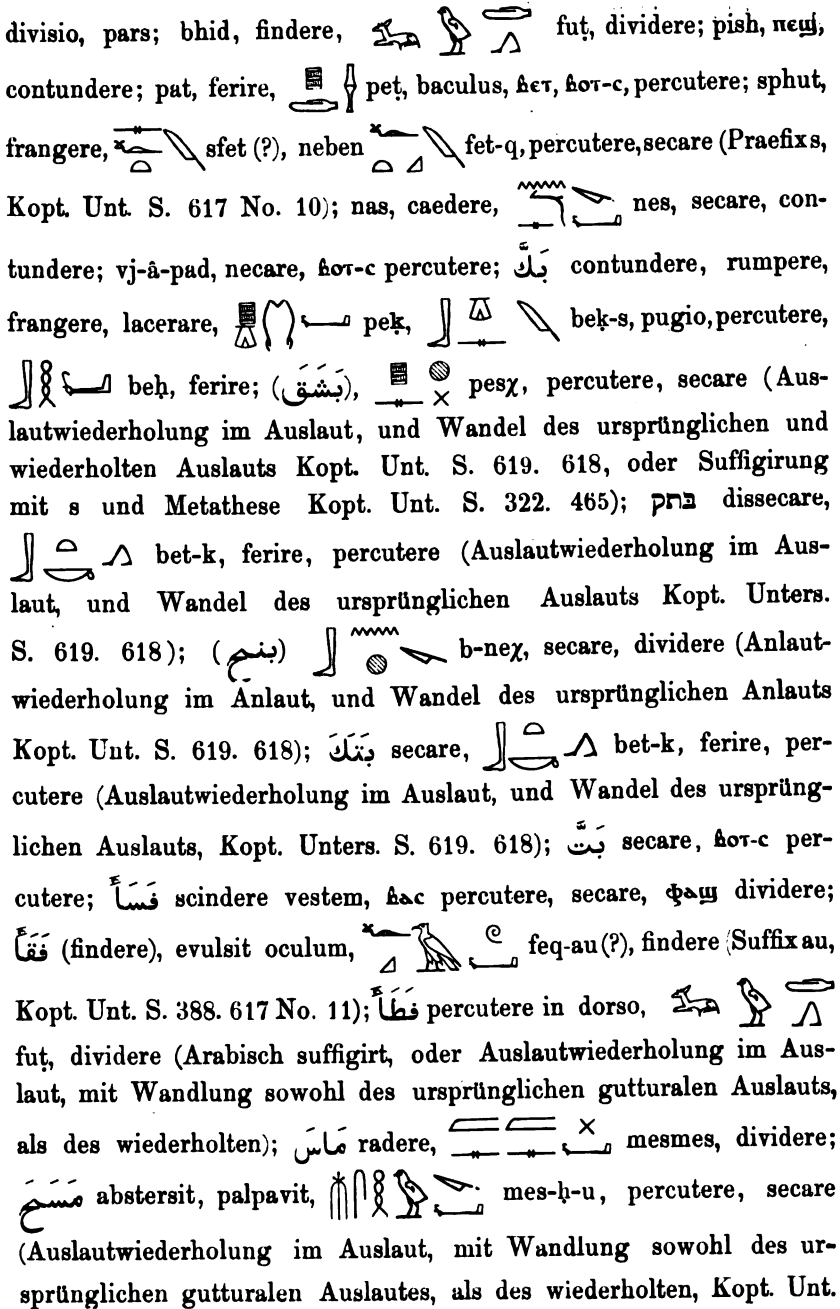 divisio, pars; bhid, findere, fuṭ, dividere; pish, ⲡⲉϣ,
contundere; pat, ferire, peṭ, baculus, ⲃⲉⲧ, ⲃⲟⲧ-ⲥ, percutere; sphut,
frangere, sfet (?), neben fet-q, percutere, secare (Praefix s,
Kopt. Unt. S. 617 No. 10); nas, caedere, nes, secare, con-
tundere; vj-â-pad, necare, ⲃⲟⲧ-ⲥ percutere; بَكَّ contundere, rumpere,
frangere, lacerare, peḳ, beḳ-s, pugio, percutere,
beḥ, ferire; (بَشَقَ), pesχ, percutere, secare (Aus-
lautwiederholung im Auslaut, und Wandel des ursprünglichen und
wiederholten Auslauts Kopt. Unt. S. 619. 618, oder Suffigirung
mit s und Metathese Kopt. Unt. S. 322. 465); בתק dissecare,
bet-k, ferire, percutere (Auslautwiederholung im Aus-
laut, und Wandel des ursprünglichen Auslauts Kopt. Unters.
S. 619. 618); b-neχ, secare, dividere (Anlaut-
wiederholung im Anlaut, und Wandel des ursprünglichen Anlauts
Kopt. Unt. S. 619. 618); بَتَكَ secare, bet-k, ferire, per-
cutere (Auslautwiederholung im Auslaut, und Wandel des ursprüng-
lichen Auslauts, Kopt. Unters. S. 619. 618); بَتَّ secare, ⲃⲟⲧ-ⲥ per-
cutere; فَسَأَ scindere vestem, ⲃⲁⲥ percutere, secare, ⲫⲁϣ dividere;
فَقَأَ (findere), evulsit oculum, feq-au (?), findere (Suffix au,
Kopt. Unt. S. 388. 617 No. 11); فَطَأَ percutere in dorso,
fuṭ, dividere (Arabisch suffigirt, oder Auslautwiederholung im Aus-
laut, mit Wandlung sowohl des ursprünglichen gutturalen Auslauts,
als des wiederholten); مَاسَ radere, mesmes, dividere;
مَسَحَ abstersit, palpavit, mes-ḥ-u, percutere, secare
(Auslautwiederholung im Auslaut, mit Wandlung sowohl des ur-
sprünglichen gutturalen Auslautes, als des wiederholten, Kopt. Unt.